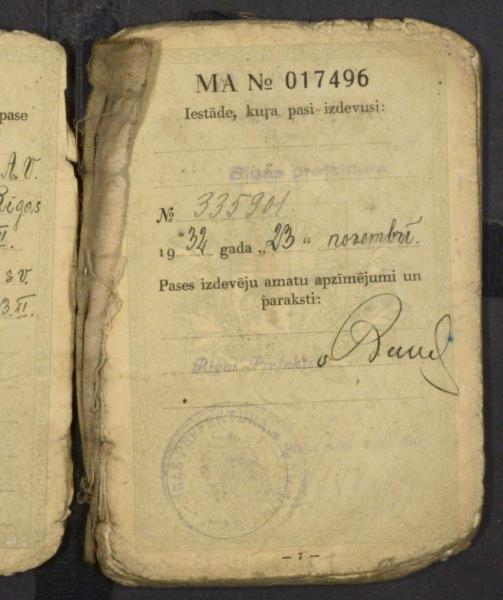 pase
A.V.
Rīgas
II.
s v.
3.XI.
MA № 017496
Iestāde, kuŗa pasi izdevusi:
Rīgas prefektūra
№ 335901
1932 gada „23“ novembrī.
Pases izdevēju amatu apzīmējumi un
paraksti:
Rīgas Prefekts
RĪGAS PREFEKTŪRA
— 7 —